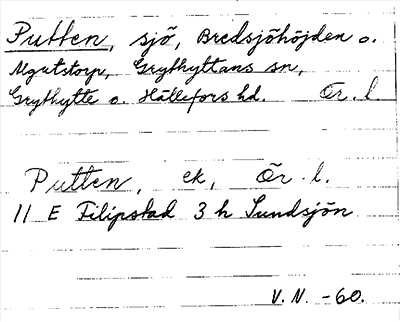 Putten, sjö, Bredsjöhöjden o.
Ngutstorp, Grythyttans sn,
Grythytte o. Hällefors hd. Ör. l.
Putten, ek, Ör. l.
11 E Filipstad 3 h Sundsjön
V.N. -60.